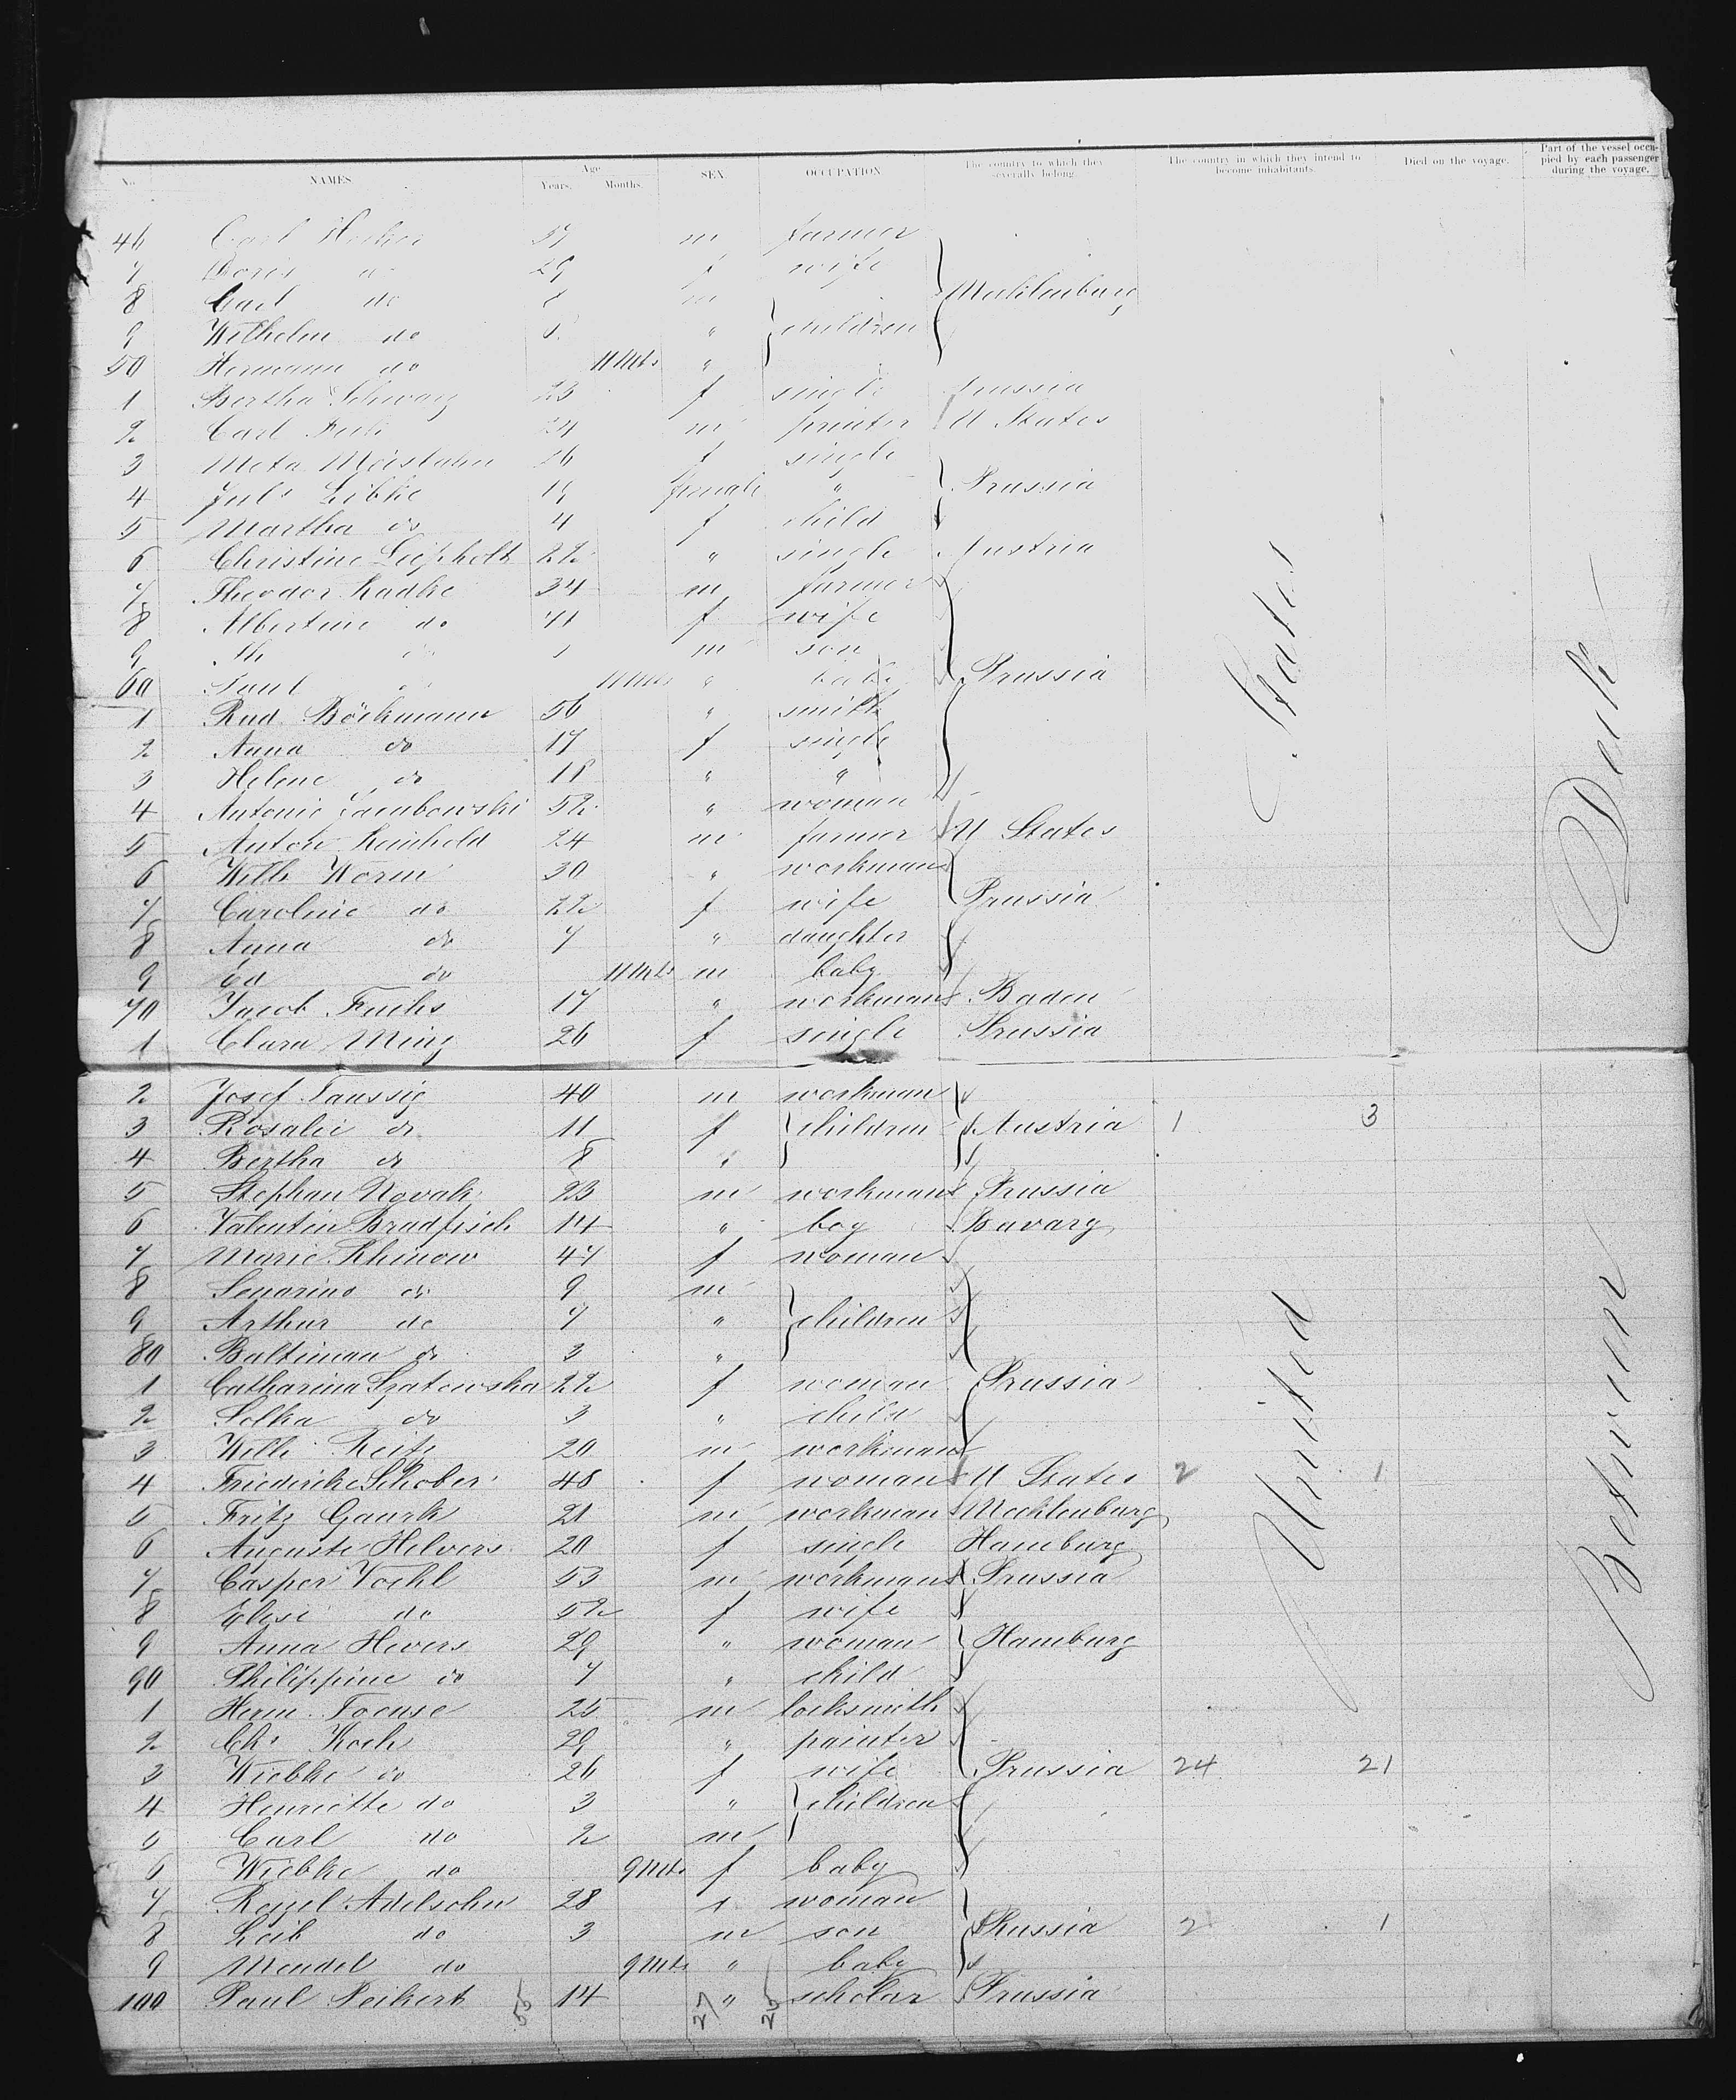 No. NAMES. Age Years. Months. SEX. OCCUPATION. The country to which they severally belong. The country in which they intend to become inhabitants. Died on the voyage. Part of the vessel occupied by each passenger during the voyage.
46 Carl m farmer
7 Doris do 29 f wife
8 Carl do m Mecklenburg
9 Wilhelm do " children
50 Hermann do 11 Mts "
1 Bertha Schwarz 23 f single Prussia
2 Carl 24 m printer U States
3 Meta 26 f single
4 Juls Libke 19 female " Prussia
5 Martha do 4 f child
6 Christine Liepholt 22 " single Austria
7 Theodor Radke 34 m farmer
8 Albertine do 41 f wife
9 do m son
60 Paul do 11 Mts " baby Prussia
1 Rud. Böckmann 56 " smith
2 Anna do 17 f single
3 Helene do 18 " "
4 Antonie 52 " woman
5 Anton Reinhold 24 m farmer U States
6 Wilh Worm 30 " workman
7 Caroline do 22 f wife Prussia
8 Anna do 7 " daughter
9 Ed do 11 Mts m baby
70 Jacob Fuchs 17 " workman Baden
1 Clara Minz 26 f single Prussia
2 Josef Taussig 40 m workman
3 Rosalie do 11 f children Austria 1 3
4 Bertha do 8 "
5 Stephan Novak 23 m workman Prussia
6 Valentin Bradfisch 14 " boy Bavary
7 Marie Rhinow 47 f woman
8 do 9 m
9 Arthur do 7 " children
80 Baltimau do 3 "
1 Catharina Szatowska 22 f woman Prussia
2 do 3 " child
3 Wilh Reitz 20 m workman
4 Friederike Schober 48 f woman U States 2 1
5 Fritz Gaurk 21 m workman Mecklenburg
6 Auguste Helvers 20 f single Hamburg
7 Casper Voehl 53 m workman Prussia
8 Elise do 52 f wife
9 Anna Hevers 29 " woman Hamburg
90 Philippine do 7 " child
1 Herm. Focuse 25 m locksmith
2 Chs Koch 29 " painter
3 Wiebke do 26 f wife Prussia 24 21
4 Henriette do 3 " children
5 Carl do 2 m
6 Wiebke do 9 Mts f baby
7 Adelsohn 28 " woman
8 Leib do 3 m son Russia 2 1
9 Mendel do 9 Mts " baby
100 Paul Peikert 14 " scholar Prussia
55 27 28
United States
Between Deck